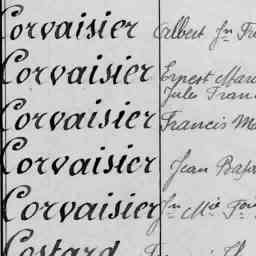 Corvaisier Albert Jn Fr
Corvaisier Ernest Mar
Jules Fran
Corvaisier Francis M
Corvaisier Jean Bap
Corvaisier Jn Mie
Costard